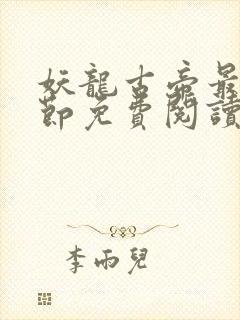 妖龍古帝最
節免費閱讀
李雨兒